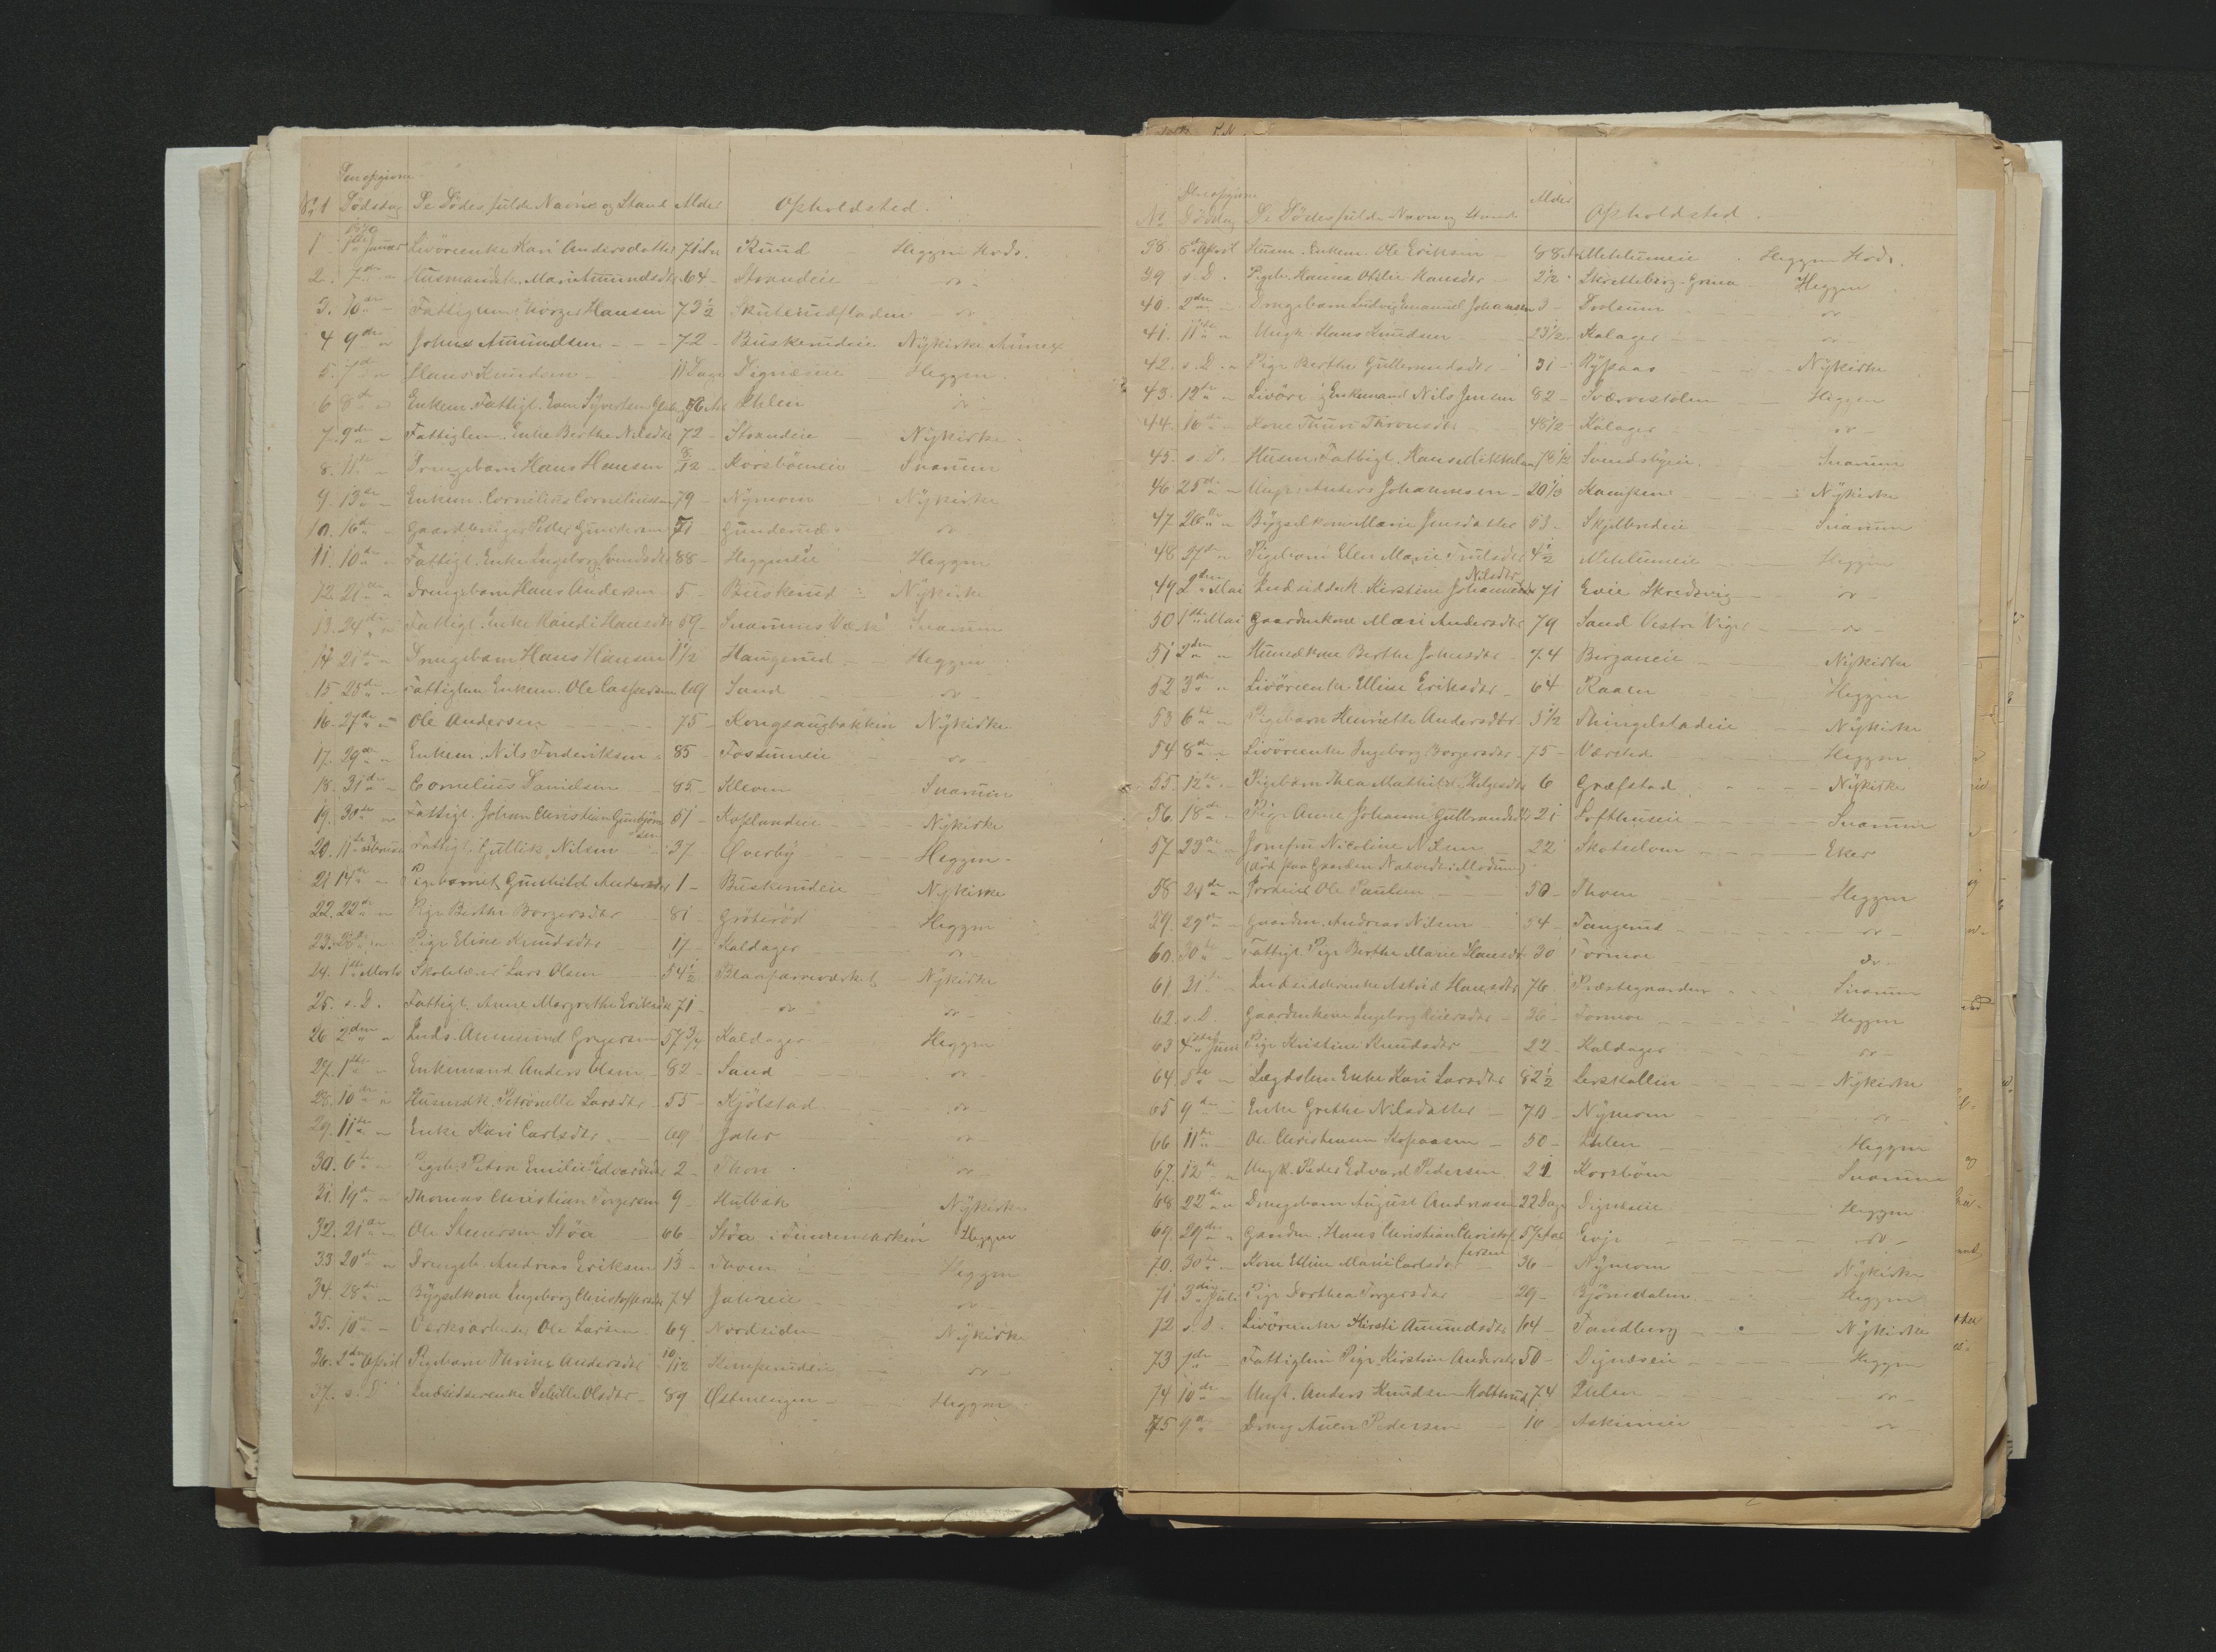 Den opgivne
No 1 Dödsdag De Dödes fulde Navne og Stand Alder Opholdsted.
1870
1 1ste Januar Livöreenke Kari Andersdatter 71 Aar Ruud Heggen Hvds.
2. 7de " Marie Amundsdtr 64 - Strandeie - do -
3. 10de - Fattiglem Hansen 73 1/2 - do
4 9de " Johns Amundsen - - - 72 - Buskerudeie Nykirke
5. 7de " Hans Knudsen - 11 Dage Dignæseie - Heggen
6 8de " Enkem. Fattigl. Even Syversen Ihlen do
7. 9de " Fattiglem. Enke Berthe Nilsdtr 72 - Strandeie - Nykirke
8. 11te " Drengebarn Hans Hansen 8/12 - Korsböneie - Snarum
9. 13de " Enkem. Cornelius Corneliusen 79 - Nymoen - Nykirke
10. 16de " Gaardbruger Peder Gundersen 51 Gunderud - do
11. 10de " Fattigl. Enke Ingeborg 88 - Heggeneie - Heggen
12. 21de " Drengebarn Hans Andersen 5 - Buskerud - Nykirke
13. 24de " Fattigl. Enke Randi Hansdtr 59 - Snarums Værk Snarum
14 21de " Drengebarn Hans Hansen 1 1/2 Haugerud - Heggen
15 25de " Fattiglem Enkem. Ole Caspersen 69 Sand - do -
16. 27de " Ole Andersen - - - 75 - Kongsaugbakken Nykirke
17. 29de " Enkem. Nils Frederiksen - 85 - Fossumeie - do -
18. 31de " Cornelius Danielsen - 85 - Kleven - Snarum
19. 30te " Fattigl. Johan Christian 51 - Koplandeie - Nykirke
20. 11te Februar Fattigl. Gullik Nilsen - 37 Överby - - - Heggen -
21 14de " Pigebarnet Gunhild Andersdtr 1 - Buskerudeie - Nykirke
22. 22de " Pige Berthe Borgersdtr - 81 - Gröteröd - Heggen
23. 26de " Pige Eline Knudsdtr - 17 - Kaldager - do -
24. 1ste Marts Skolelærer Lars Olsen - 54 1/2 - Blaafarveværket - Nykirke
25. s.D. Fattigl. Anne Margrethe Eriksdtr 71 - do - do -
26 2den " Inds. Ammund Gregersen 57 3/4 Kaldager - Heggen
27. 1ste " Enkemand Anders Olsen - 82 - Sand - do -
28. 10de " Husmdk. Petronelle Larsdtr - 55 - Kjölstad - do -
29. 11te " Enke Kari Carlsdtr. - 69 Jahr - do
30. 6te " Pigeb. Petra Emilie Edvardsdtr 2 - Thon - do -
31. 19de " Thomas Christian Torgersen 9 - Hulbak - Nykirke
32. 21de " Ole Stenersen Stöa 66 - Stöa i Finnemarken Heggen
33. 20de " Drengeb. Andreas Eriksen 13 - Thoen - Heggen
34. 28de " Bygselkone Ingeborg Christophersdtr 74 Jahreie - do -
35. 10de - Værksarbeider Ole Larsen 69 Nordsiden Nykirke
36. 2den April Pigebarn Andersdtr 10/12 - do -
37. s.D. Indsidderenke Sibille Olsdtr - 89 Östmengen - Heggen
Den opgivne
No Dödsdag De Dödes fulde Navn og Stand Alder Opholdsted.
38 8de April Husm. Enkem. Ole Eriksen - 88 Ar Mehlumeie . Heggen Hvds.
39 s.D. Pigeb. Hanna Otilie Hansdtr - 2 1/2 - Skretteberg Heggen
40. 2den Drengebarn Ludvig Emanuel Johansen 3 - Drolsum - do -
41. 11te " Ungk. Hans Knudsen - 23 1/2 - Kalager - do -
42. s.D. " Pige Berthe Guttormsdatter - 31 - Rypaas - - - Nykirke
43. 12te " Livöre Enkemand Nils Jensen 82 - - Heggen
44. 16de " Kone Thuri Thronsdtr - 48 1/2 - Kalager - do -
45. s.D. Husm. Fattigl. Hans Mikkelsen 78 1/2 Svendsbyeie - Snarum
46 25de " Ungk. Anders Johannesen - 20 1/3 - Nykirke
47 26de " Bygselkone Marie Jensdatter 53 - Skjelbredeie - Snarum
48 27de " Pigebarn Ellen Marie Trulsdtr 4 1/2 Mehlumeie - Heggen
Nilsdtr
49 2den Mai Indsidderk. Kirstine 71 Evie Skredsvig - do -
50 1ste Mai Gaardmkone Mari Andersdtr 79 Sand Vestre Viger - do -
51 2den " Husmdkone Berthe Johnsdtr - 74 Berganeie - Nykirke
52 3de " Livöreenke Eline Eriksdtr - 64 Kaasen - Heggen
53 6te " Pigebarn Henriette Andersdtr - 3 1/2 Thingelstadeie - Nykirke
54 8de " Livöreenke Ingeborg Borgersdtr - 75 - Værsted - Heggen
55. 12te " Pigebarn Thea Mathilde Helgesdtr 6 Græfstad - - - Nykirke
56. 18de " Pige Anne Johanne Gulbrandsdtr 21 Lofthuseie - Snarum
57 23de " Josefine Nicoline Nilsen 22 Skotselven - Eker
(död paa Gaarden Natvedt i Modum)
58 24de " Ole Paulsen - 50 - Thoen - Heggen
59. 29de " Gaardm. Andreas Nilsen - 54 - Tangerud - do -
60. 30te " Fattigl. Pige Berthe Marie Hansdtr 30 Formoe - do -
61. 31te " Indsidderenke Astrid Hansdtr 76 Præstegaarden - - Snarum
62. s.D. Gaardmkone Ingeborg - 26 - Formoe - Heggen
63 4de Juni Pige Kristine Knudsdtr - 22 - Kaldager - do -
64. 5te " Lægdslem Enke Kari Larsdtr 82 1/2 Lerskallen - Nykirke
65 9de " Enke Grethe Nilsdatter - 70 - Nymoen - do
66 11te " Ole Christensen - 50 - Ihlen - Heggen
67. 12te " Ungk. Peder Edvard Pedersen 21 Korsböen - Snarum
68 22de " Drengebarn August Andreasen 22 Dage Dignæseie Heggen
69. 29de " Gaardm. Hans Christian Christof 57 Aar Evje - do -
fersen
70. 30te " Kone Elline Marie Carlsdtr 36 - Nymoen Nykirke
71 3die Juli Pige Dorthea Torgersdtr 29 - Bjönndalen - Heggen
72 s.D. Livöreenke Kirsti Amundsdtr 64 - Tandberg - Nykirke
73 7de " Fattiglem Pige Kirstine Andersdtr 50 - Dignæseie - Heggen
74 10de " Ungk. Anders Knudsen 74 Ihlen - do
75 9de - Dreng Auen Pedersen - 10 - Askimeie - do -